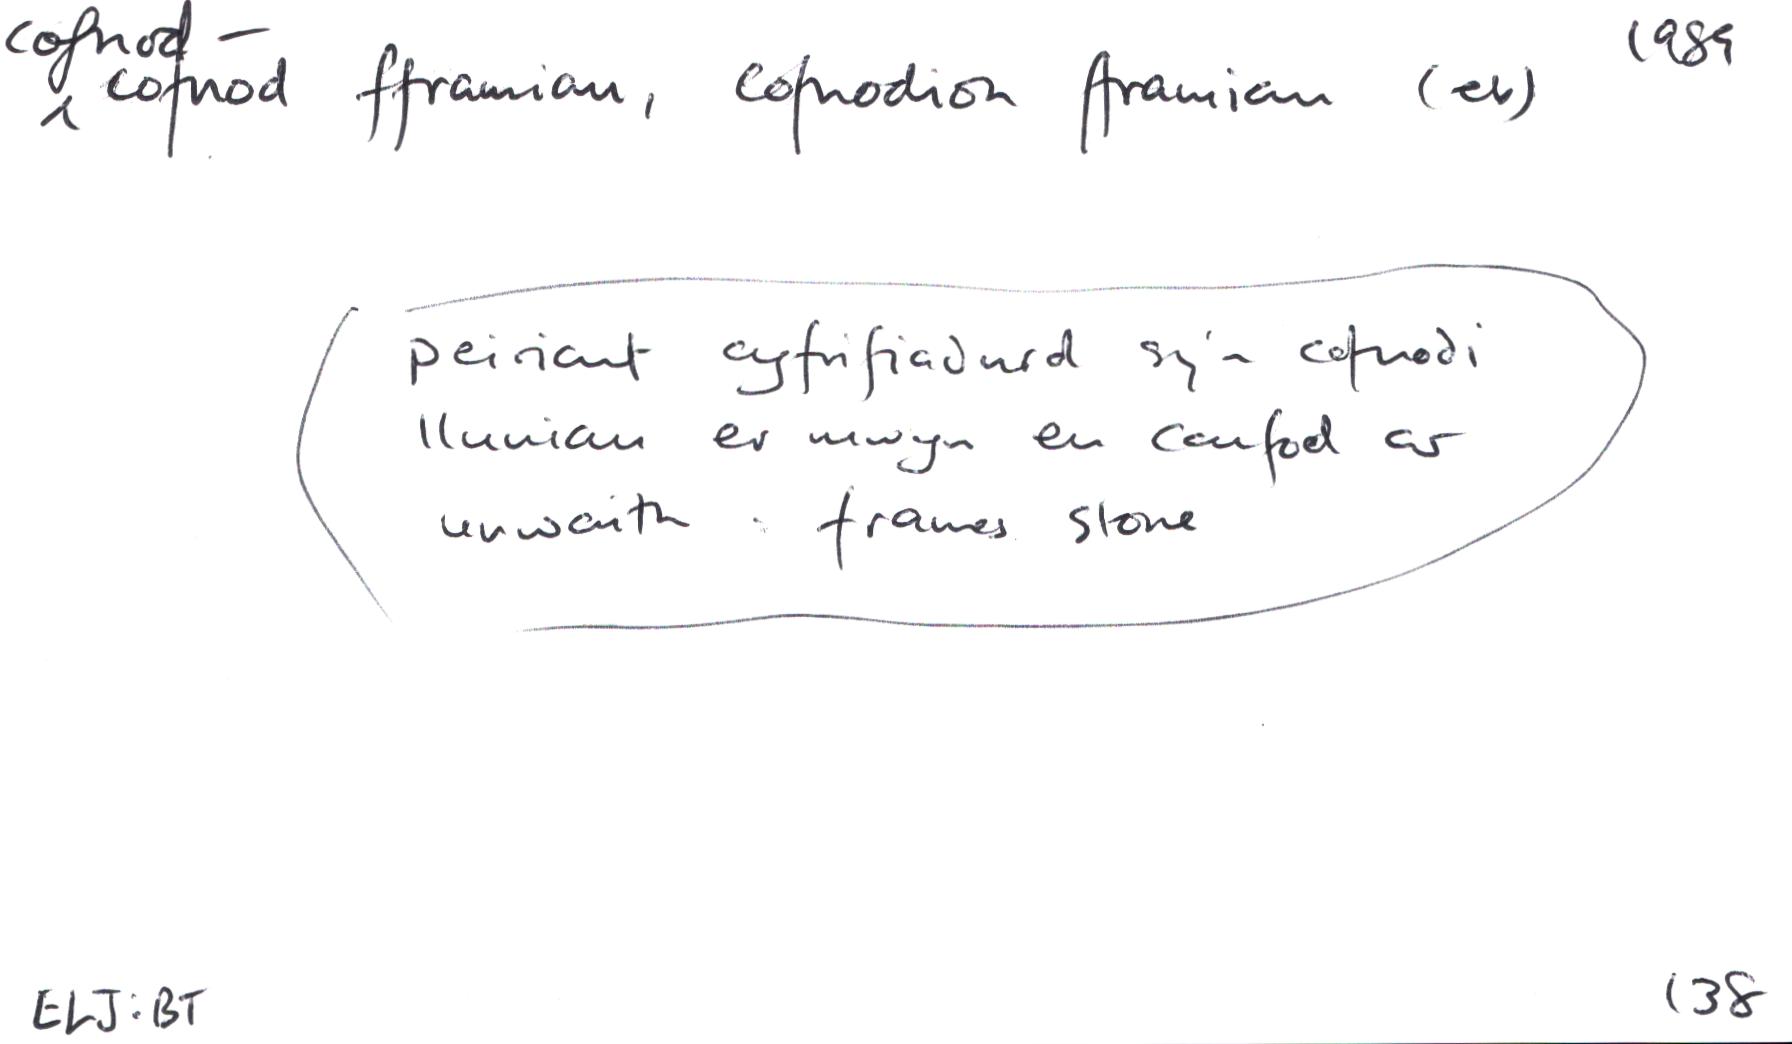 cofnod - 1989
cofnod fframiau, cofnodion fframiau (eb)
peiriant cyfrifiadurol sy'n cofnodi
lluniau er mwyn eu canfod ar
unwaith : frames store
ELJ:BT 138